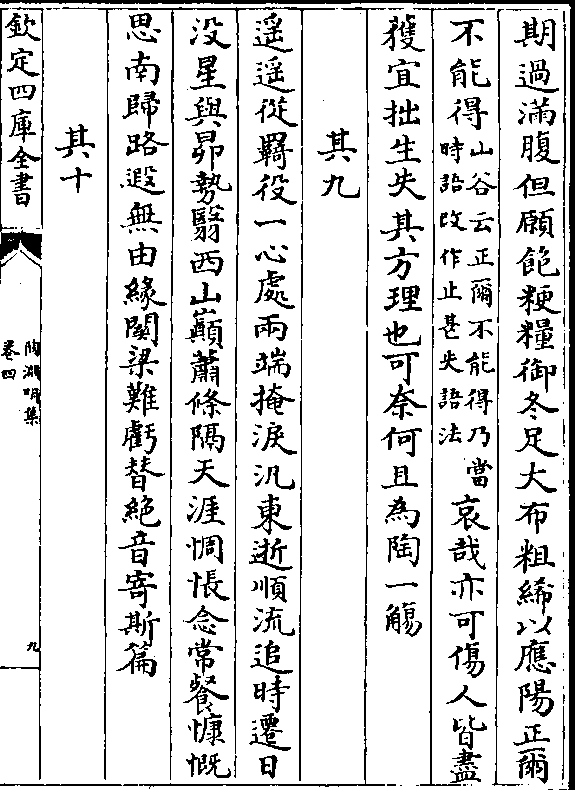 期過滿腹但願飽粳糧御冬足大布粗絺以應陽正爾
不能得山谷云正爾不能得乃當
時語改作止甚失語法哀哉亦可傷人皆盡
獲宜拙生失其方理也可奈何且為陶一觴
其九
遥遥從羇役一心處兩端掩淚汎東逝順流追時遷日
没星與昴勢翳西山巔蕭條隔天涯惆悵念常餐慷慨
思南歸路遐無由緣關梁難虧替絶音寄斯篇
其十
欽定四庫全書
陶淵明集
卷四
九